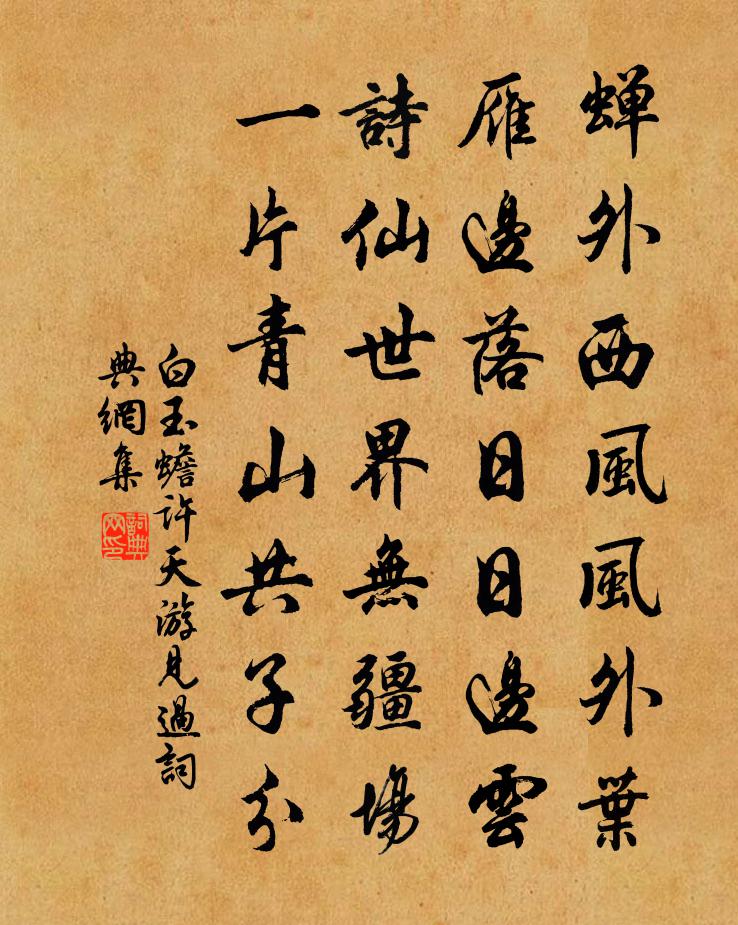 蝉外西風風外葉
雁邊落日日邊雲
詩仙世界無疆場
一片青山共子分
白玉蟾许天游見過詞
典網集
詞典網印